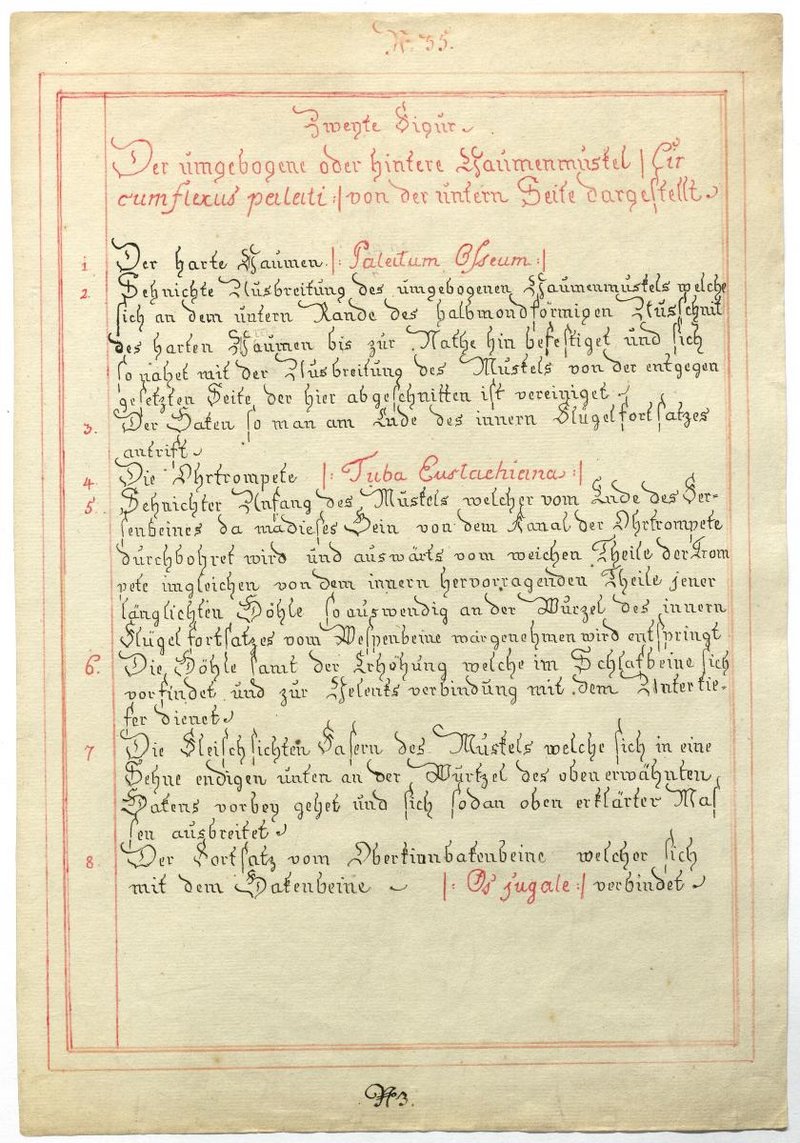 N. 35.
Zweyte Figur.
Der umgebogene oder hintere Gaumenmuskel |: Cir
cumflexus palati :| von der untern Seite dargestellt.
1 Der harte Gaumen |: Palatum Osseum :|
2. Sehnichte Ausbreitung des umgebogenen Gaumenmuskels welche
sich an dem untern Rande des halbmondförmigen Ausschnit
des harten Gaumen bis zur Nathe hin befestiget und sich
so nahet mit der Ausbreitung des Muskels von der entgegen
gesetzten Seite der hier abgeschnitten ist vereiniget.
3. Der Haken so man am Ende des innern Flügelfortsatzes
antrift.
4. Die Ohrtrompete |: Tuba Eustachiana :|
5. Sehnichter Anfang des Muskels welcher vom Ende des Fer-
senbeines da wa dieses Bein von dem Kanal der Ohrtrompete
durchbohret wird und auswärts vom weichen Theile der Trom
pete imgleichen von dem innern hervorragenden Theile jener
länglichten Höhle so auswendig an der Wurzel des innern
Flügelfortsatzes vom Wespenbeine wargenehmen wird entspringt
6. Die Höhle samt der Erhöhung welche im Schlafbeine sich
vorfindet und zur Gelenks verbindung mit dem Unterkie-
fer dienet.
7 Die Fleischsichten Fasern des Muskels welche sich in eine
Sehne endigen unten an der Wurtzel des oben erwähnten
Hakens vorbey gehet und sich sodan oben erklärter Mas
sen ausbreitet.
8. Der Fortsatz vom Oberkinnbakenbeine welcher sich
mit dem Bakenbeine |: Os jugale :| verbindet.
N 3.